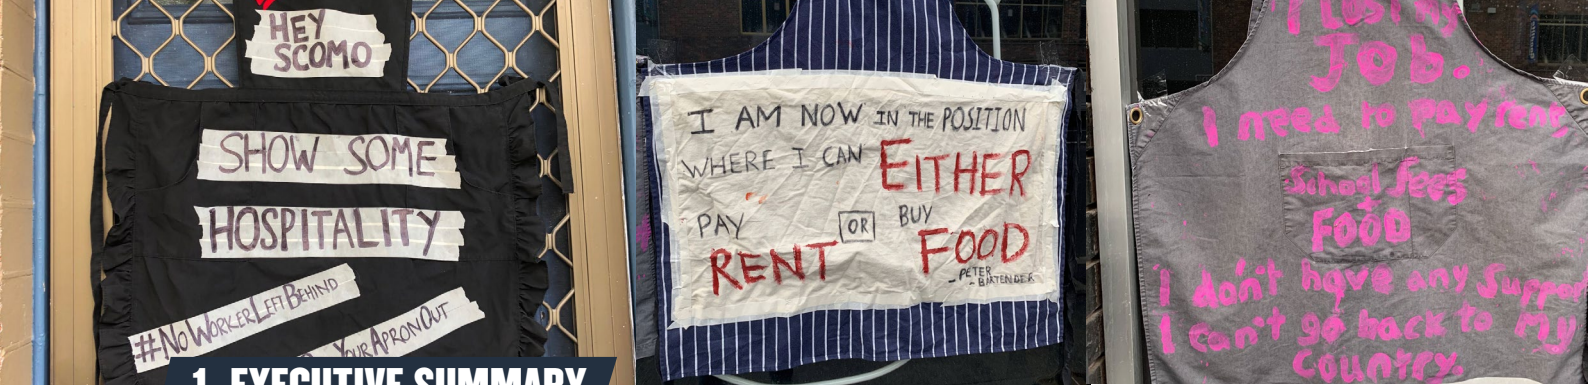 HEY
SCOMO
SHOW SOME
HOSPITALITY
#NOWORKERLEFTBEHIND
YOURAPRONOUT
1. EXECUTIVE SUMMARY
I AM NOW IN THE POSITION
WHERE I CAN EITHER
PAY OR BUY
RENT FOOD
-PETER
-BARTENDER
JOB.
I need to pay rent,
School fees
+
FOOD
I don't have any Suppor
I can't go back to My
Country.